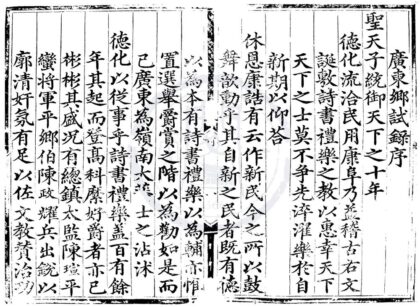 廣東鄉試錄序
聖天子統御天下之十年
德化流洽民用康阜乃益稽古右文
誕敷詩書禮樂之教以惠幸天下
天下之士莫不爭先淬濯樂於自
新期以仰答
休息康誥有云作新民今之所以鼓
舞歆動乎其自新之民者既有德
以為本有詩書禮樂以為輔亦惟
置選舉爵賞之階以為勸如是而
已廣東為嶺南大 士之沾沐
德化以從事乎詩書禮樂蓋百有餘
年其起而登高科縻好爵者亦已
彬彬其盛况有總鎮太監陳瑄平
蠻將軍平鄉伯陳政耀兵出銳以
廓清奸氛有足以佐文教贊治功